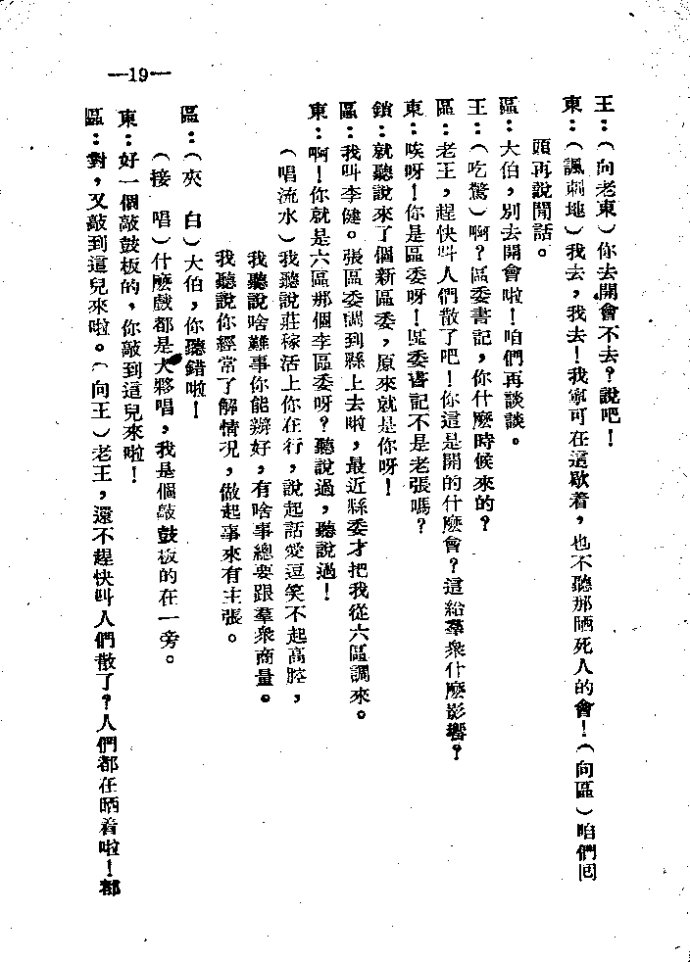 —19—
王：（向老東）你去開會不去？說吧！
東：（諷刺地）我去，我去！我寧可在這歇着，也不聽那晒死人的會！（向區）咱們回
頭再說閒話。
區：大伯，別去開會啦！咱們再談談。
王：（吃驚）啊？區委書記，你什麽時候來的？
區：老王，趕快叫人們散了吧！你這是開的什麽會？這給羣衆什麽影響？
東：唉呀！你是區委呀！區委書記不是老張嗎？
鎖：就聽說來了個新區委，原來就是你呀！
區：我叫李健。張區委調到縣上去啦，最近縣委才把我從六區調來。
東：啊！你就是六區那個李區委呀？聽說過，聽說過！
（唱流水）我聽說莊稼活上你在行，說起話愛逗笑不起高腔，
我聽說啥難事你能辦好，有啥事總要跟羣衆商量。
我聽說你經常了解情况，做起事來有主張。
區：（夾　白）大伯，你聽錯啦！
（接　唱）什麽戲都是大夥唱，我是個敲鼓板的在一旁。
東：好一個敲鼓板的，你敲到這兒來啦！
區：對，又敲到這兒來啦。（向王）老王，還不趕快叫人們散了？人們都在晒着啦！都